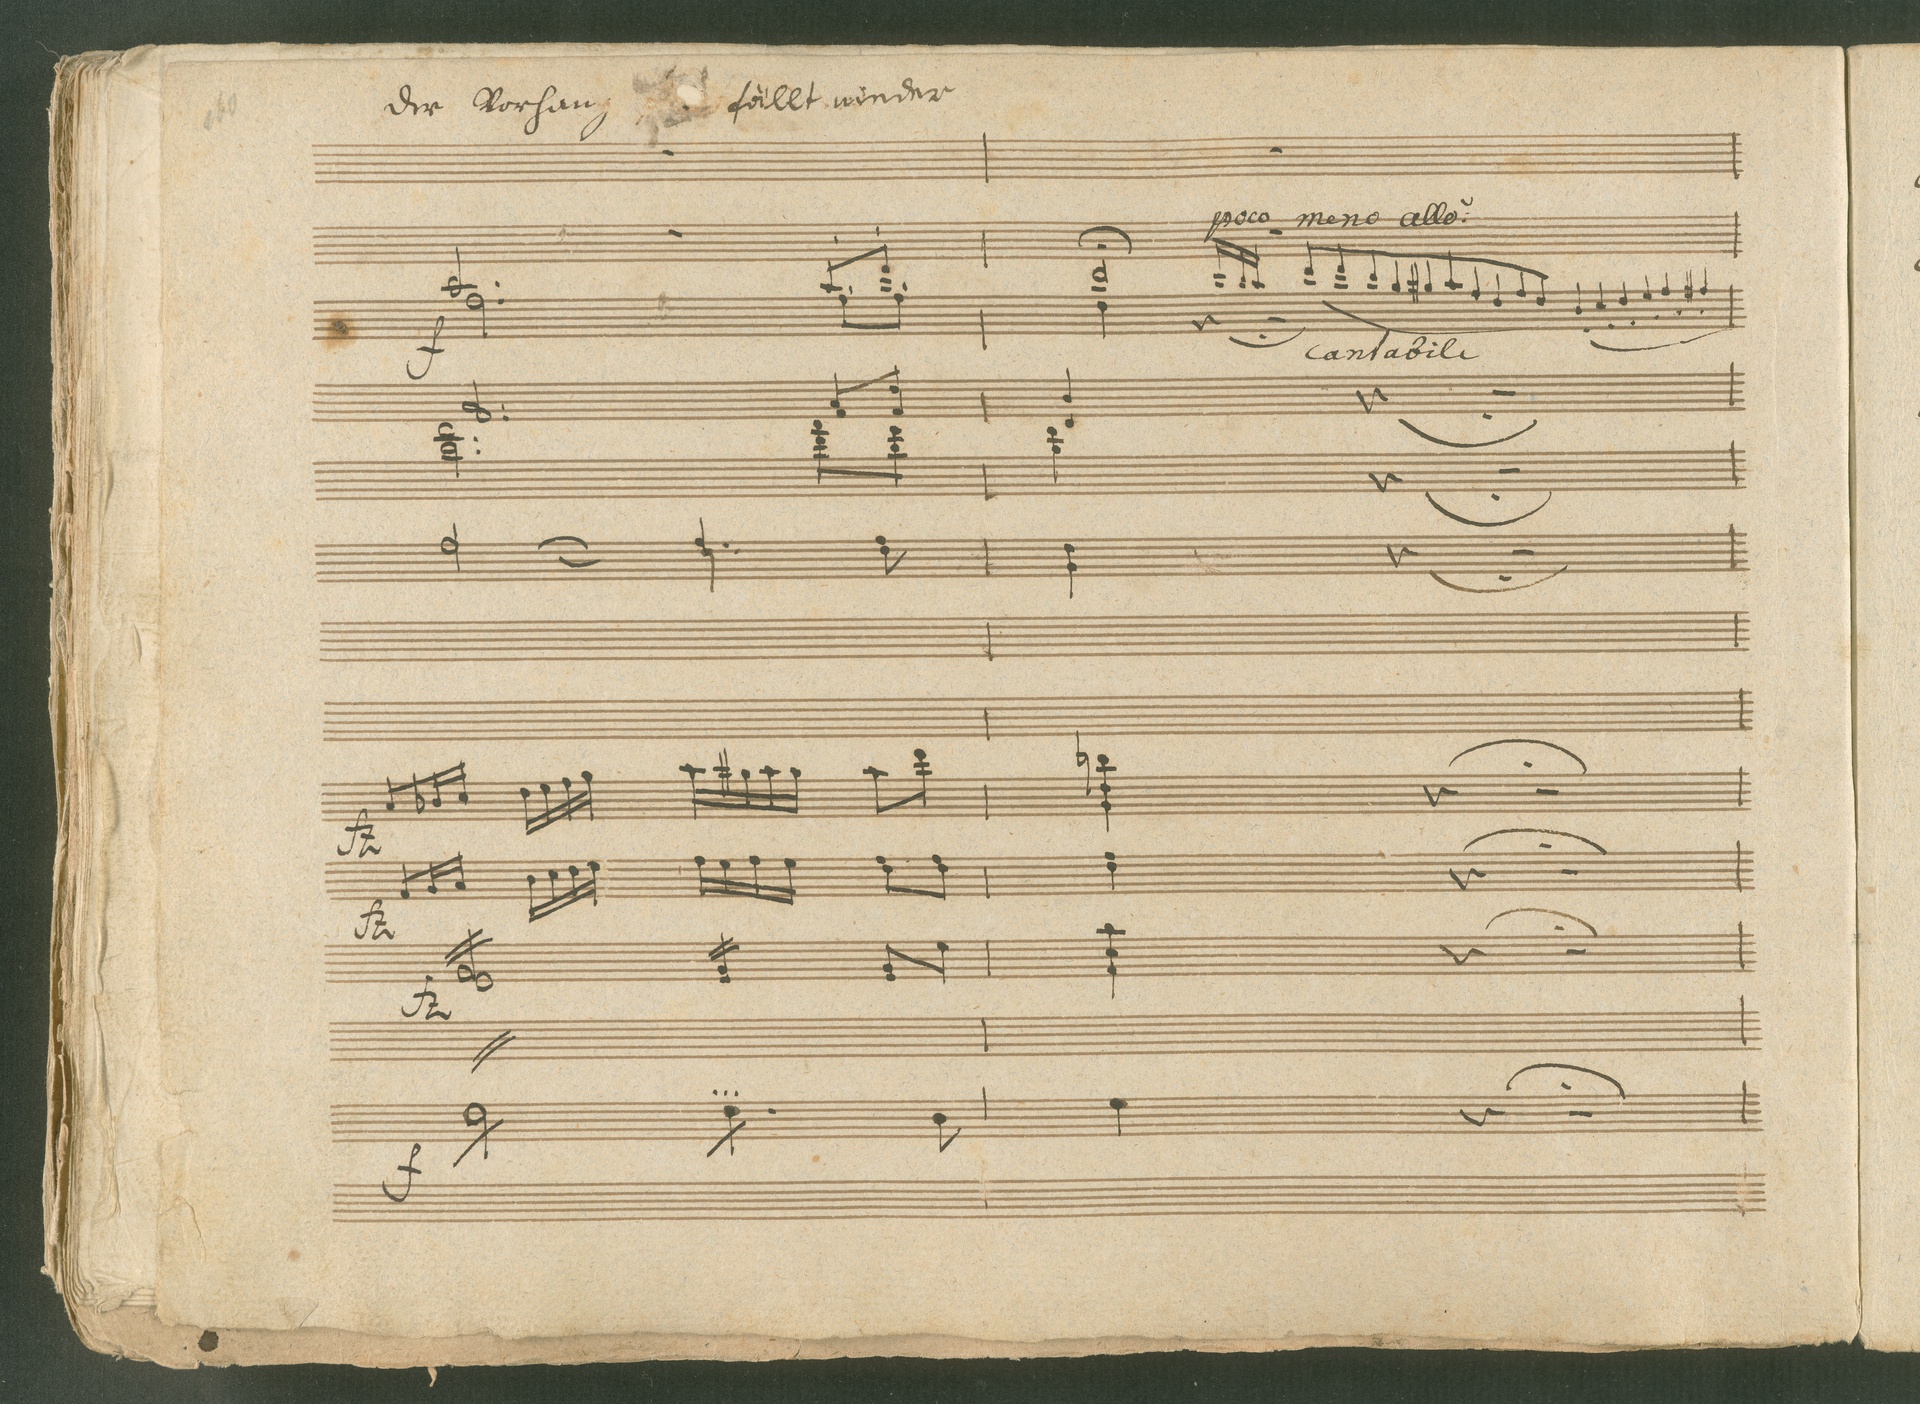 der Vorhang fällt wieder
poco meno allo:
f
cantabile
fz
fz
fz
f